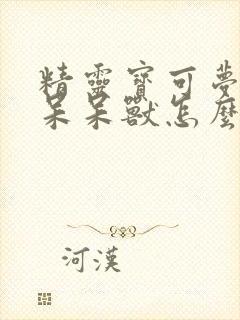 精靈寶可夢
呆呆獸怎麼
河漢